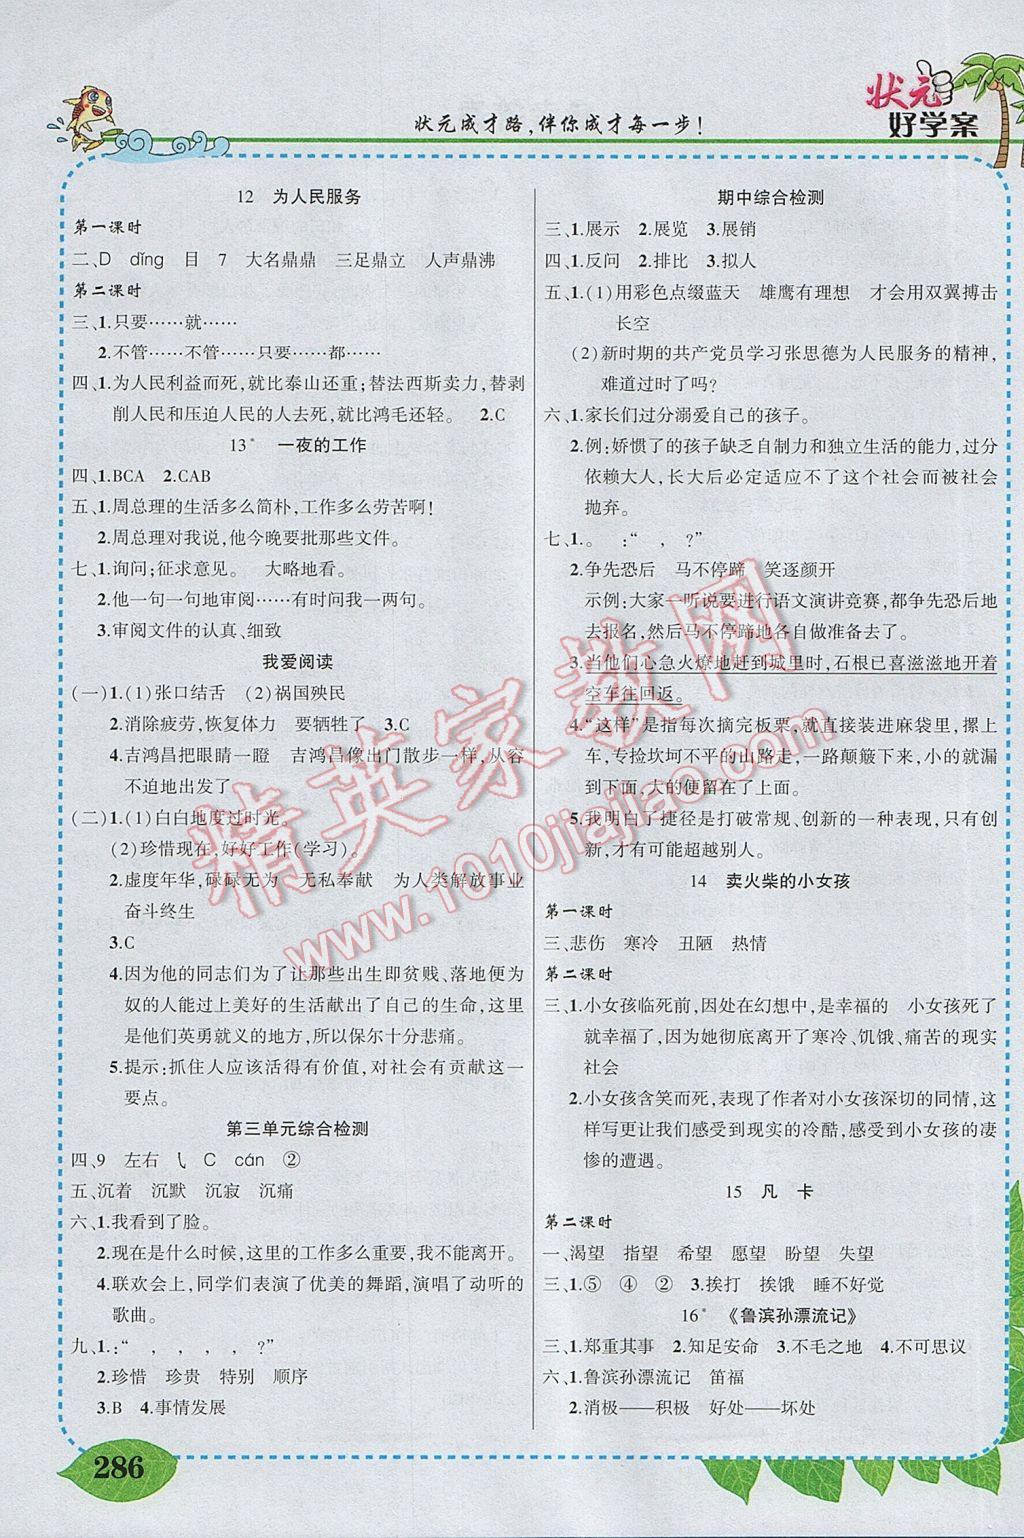 状元成才路,伴你成才每一步!
状元
好学案
12 为人民服务
第一课时
二、D dǐng 目 7 大名鼎鼎 三足鼎立 人声鼎沸
第二课时
三、1.只要……就……
2.不管……不管……只要……都……
四、1.为人民利益而死,就比泰山还重;替法西斯卖力,替剥
削人民和压迫人民的人去死,就比鸿毛还轻。 2.C
13* 一夜的工作
四、1.BCA 2.CAB
五、1.周总理的生活多么简朴,工作多么劳苦啊!
2.周总理对我说,他今晚要批那些文件。
七、1.询问;征求意见。 大略地看。
2.他一句一句地审阅……有时问我一两句。
3.审阅文件的认真、细致
我爱阅读
(一)1.(1)张口结舌 (2)祸国殃民
2.消除疲劳,恢复体力 要牺牲了 3.C
4.吉鸿昌把眼睛一瞪 吉鸿昌像出门散步一样,从容
不迫地出发了
(二)1.(1)白白地度过时光。
(2)珍惜现在,好好工作(学习)。
2.虚度年华,碌碌无为 无私奉献 为人类解放事业
奋斗终生
3.C
4.因为他的同志们为了让那些出生即贫贱、落地便为
奴的人能过上美好的生活献出了自己的生命,这里
是他们英勇就义的地方,所以保尔十分悲痛。
5.提示:抓住人应该活得有价值,对社会有贡献这一
要点。
第三单元综合检测
四、9 左右 乀 C cán ②
五、沉着 沉默 沉寂 沉痛
六、1.我看到了脸。
2.现在是什么时候,这里的工作多么重要,我不能离开。
4.联欢会上,同学们表演了优美的舞蹈,演唱了动听的
歌曲。
九、1:“ , , , , ?”
2.珍惜 珍贵 特别 顺序
3.B 4.事情发展
期中综合检测
三、1.展示 2.展览 3.展销
四、1.反问 2.排比 3.拟人
五、1.(1)用彩色点缀蓝天 雄鹰有理想 才会用双翼搏击
长空
(2)新时期的共产党员学习张思德为人民服务的精神,
难道过时了吗?
六、1.家长们过分溺爱自己的孩子。
2.例:娇惯了的孩子缺乏自制力和独立生活的能力,过分
依赖大人,长大后必定适应不了这个社会而被社会
抛弃。
七、1。 :“ , ?”
2.争先恐后 马不停蹄 笑逐颜开
示例:大家一听说要进行语文演讲竞赛,都争先恐后地
去报名,然后马不停蹄地各自做准备去了。
3.当他们心急火燎地赶到城里时,石根已喜滋滋地开着
空车往回返。
4.“这样”是指每次摘完板栗,就直接装进麻袋里,摞上
车,专捡坎坷不平的山路走,一路颠簸下来,小的就漏
到下面,大的便留在了上面。
5.我明白了捷径是打破常规、创新的一种表现,只有创
新,才有可能超越别人。
14 卖火柴的小女孩
第一课时
三、悲伤 寒冷 丑陋 热情
第二课时
三、1.小女孩临死前,因处在幻想中,是幸福的 小女孩死了
就幸福了,因为她彻底离开了寒冷、饥饿、痛苦的现实
社会
2.小女孩含笑而死,表现了作者对小女孩深切的同情,这
样写更让我们感受到现实的冷酷,感受到小女孩的凄
惨的遭遇。
15 凡卡
第二课时
一、渴望 指望 希望 愿望 盼望 失望
三、1.⑤ ④ ② 3.挨打 挨饿 睡不好觉
16* 《鲁滨孙漂流记》
三、1.郑重其事 2.知足安命 3.不毛之地 4.不可思议
六、1.鲁滨孙漂流记 笛福
2.消极——积极 好处——坏处
286
精英家教网
www.1010jiajiao.com